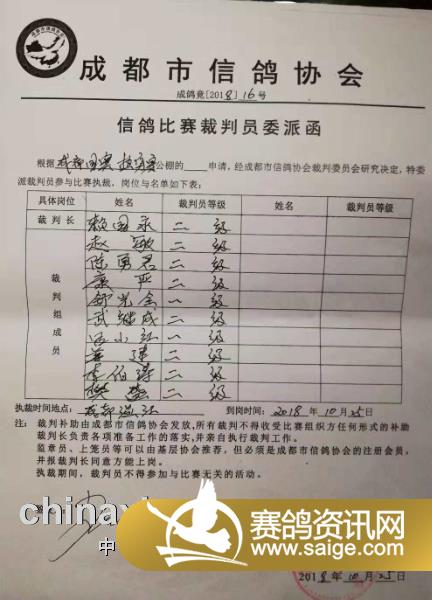 成都市信鸽协会
成鸽竞[2018]16号
信鸽比赛裁判员委派函
根据 公棚的 申请,经成都市信鸽协会裁判委员会研究决定,特委
派裁判员参与比赛执裁,岗位与名单如下表:
具体岗位 姓名 裁判员等级 姓名 裁判员等级
裁判长 赖国永 二级
裁判组成员
赵敏 二级
陈勇君 二级
康严 二级
邹光全 一级
武继成 二级
小江 一级
建 二级
李伯 二级
二级
执裁时间地点: 成都温江 到岗时间: 2018年10月25日
注: 裁判补助由成都市信鸽协会发放,所有裁判不得收受比赛组织方任何形式的补助
裁判长负责各项准备工作的落实,并亲自执行裁判工作。
监章员、上笼员等可以由基层协会推荐,但必须是成都市信鸽协会的注册会员,
并报裁判长同意方能上岗。
执裁期间,裁判员不得参加与比赛无关的活动。
chinax
中
赛鸽资讯网
www.saige.com
2018年10月25日